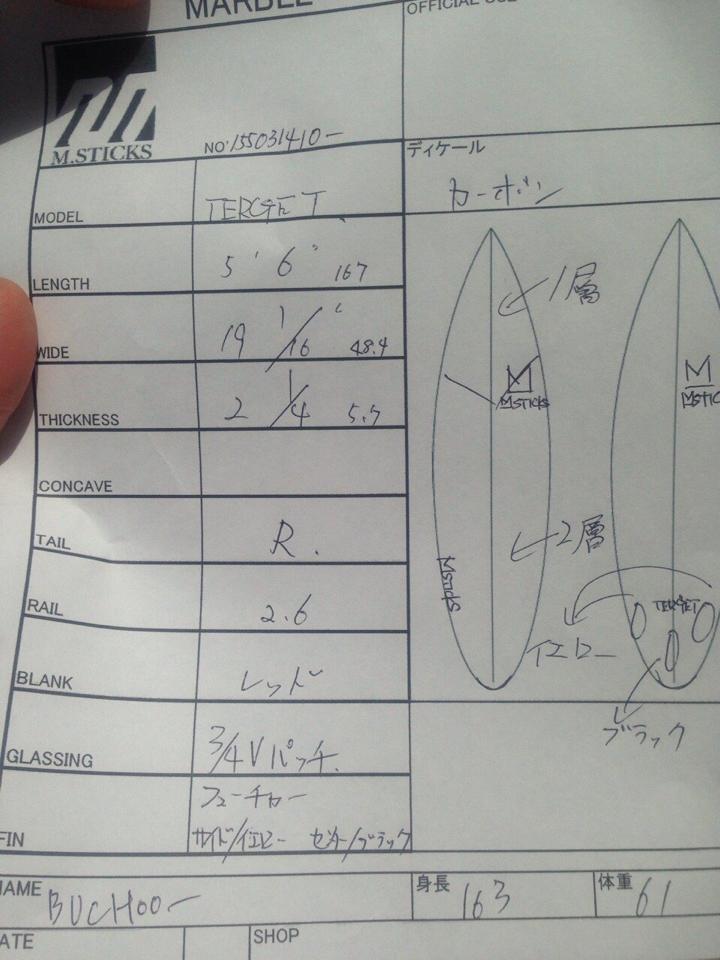 MARBLE
OFFICIAL USE
M.STICKS
NO' 155031410-
ディケール
カーボン
MODEL TERGET
LENGTH 5' 6" 167
WIDE 19 1/16" 48.4
THICKNESS 2 1/4 5.7
CONCAVE
TAIL R.
RAIL 2.6
BLANK レッド
GLASSING 3/4 Vパッチ.
FIN フューチャー
サイド/イエロー センター/ブラック
1層
M
MSTICKS
M
MSTIC
2層
MSTICKS
TERGET
イエロー
ブラック
NAME BUCHOO-
身長 163
体重 61
ATE
SHOP